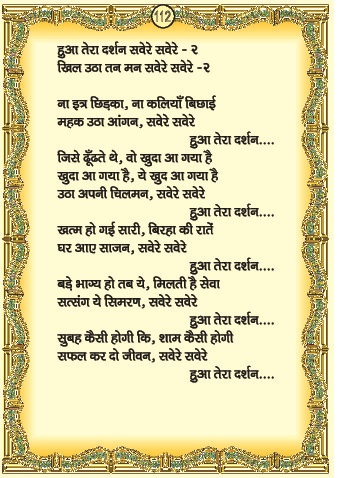 112
हुआ तेरा दर्शन सवेरे सवेरे - २
खिल उठा तन मन सवेरे सवेरे -२
ना इत्र छिड़का, ना कलियाँ बिछाई
महक उठा आंगन, सवेरे सवेरे
हुआ तेरा दर्शन....
जिसे ढूँढते थे, वो खुदा आ गया है
खुदा आ गया है, ये खुद आ गया है
उठा अपनी चिलमन, सवेरे सवेरे
हुआ तेरा दर्शन....
खत्म हो गई सारी, बिरहा की रातें
घर आए साजन, सवेरे सवेरे
हुआ तेरा दर्शन....
बड़े भाग्य हो तब ये, मिलती है सेवा
सत्संग ये सिमरण, सवेरे सवेरे
हुआ तेरा दर्शन....
सुबह कैसी होगी कि, शाम कैसी होगी
सफल कर दो जीवन, सवेरे सवेरे
हुआ तेरा दर्शन....